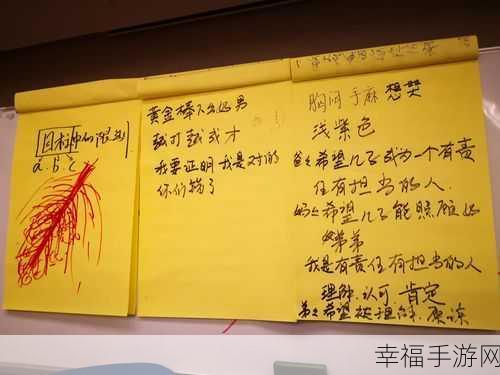 目标中的限制
a.b.c
黄金棒下出好男
我要证明我是对的
你们错了
胸闷 手麻 想哭
浅紫色
爸爸希望儿子成为一个有责
任有担当的人.
妈妈希望儿子能照顾好
弟弟
我是有责任有担当的人
理解.认可.肯定
弟弟希望被理解.原谅
幸福手游网